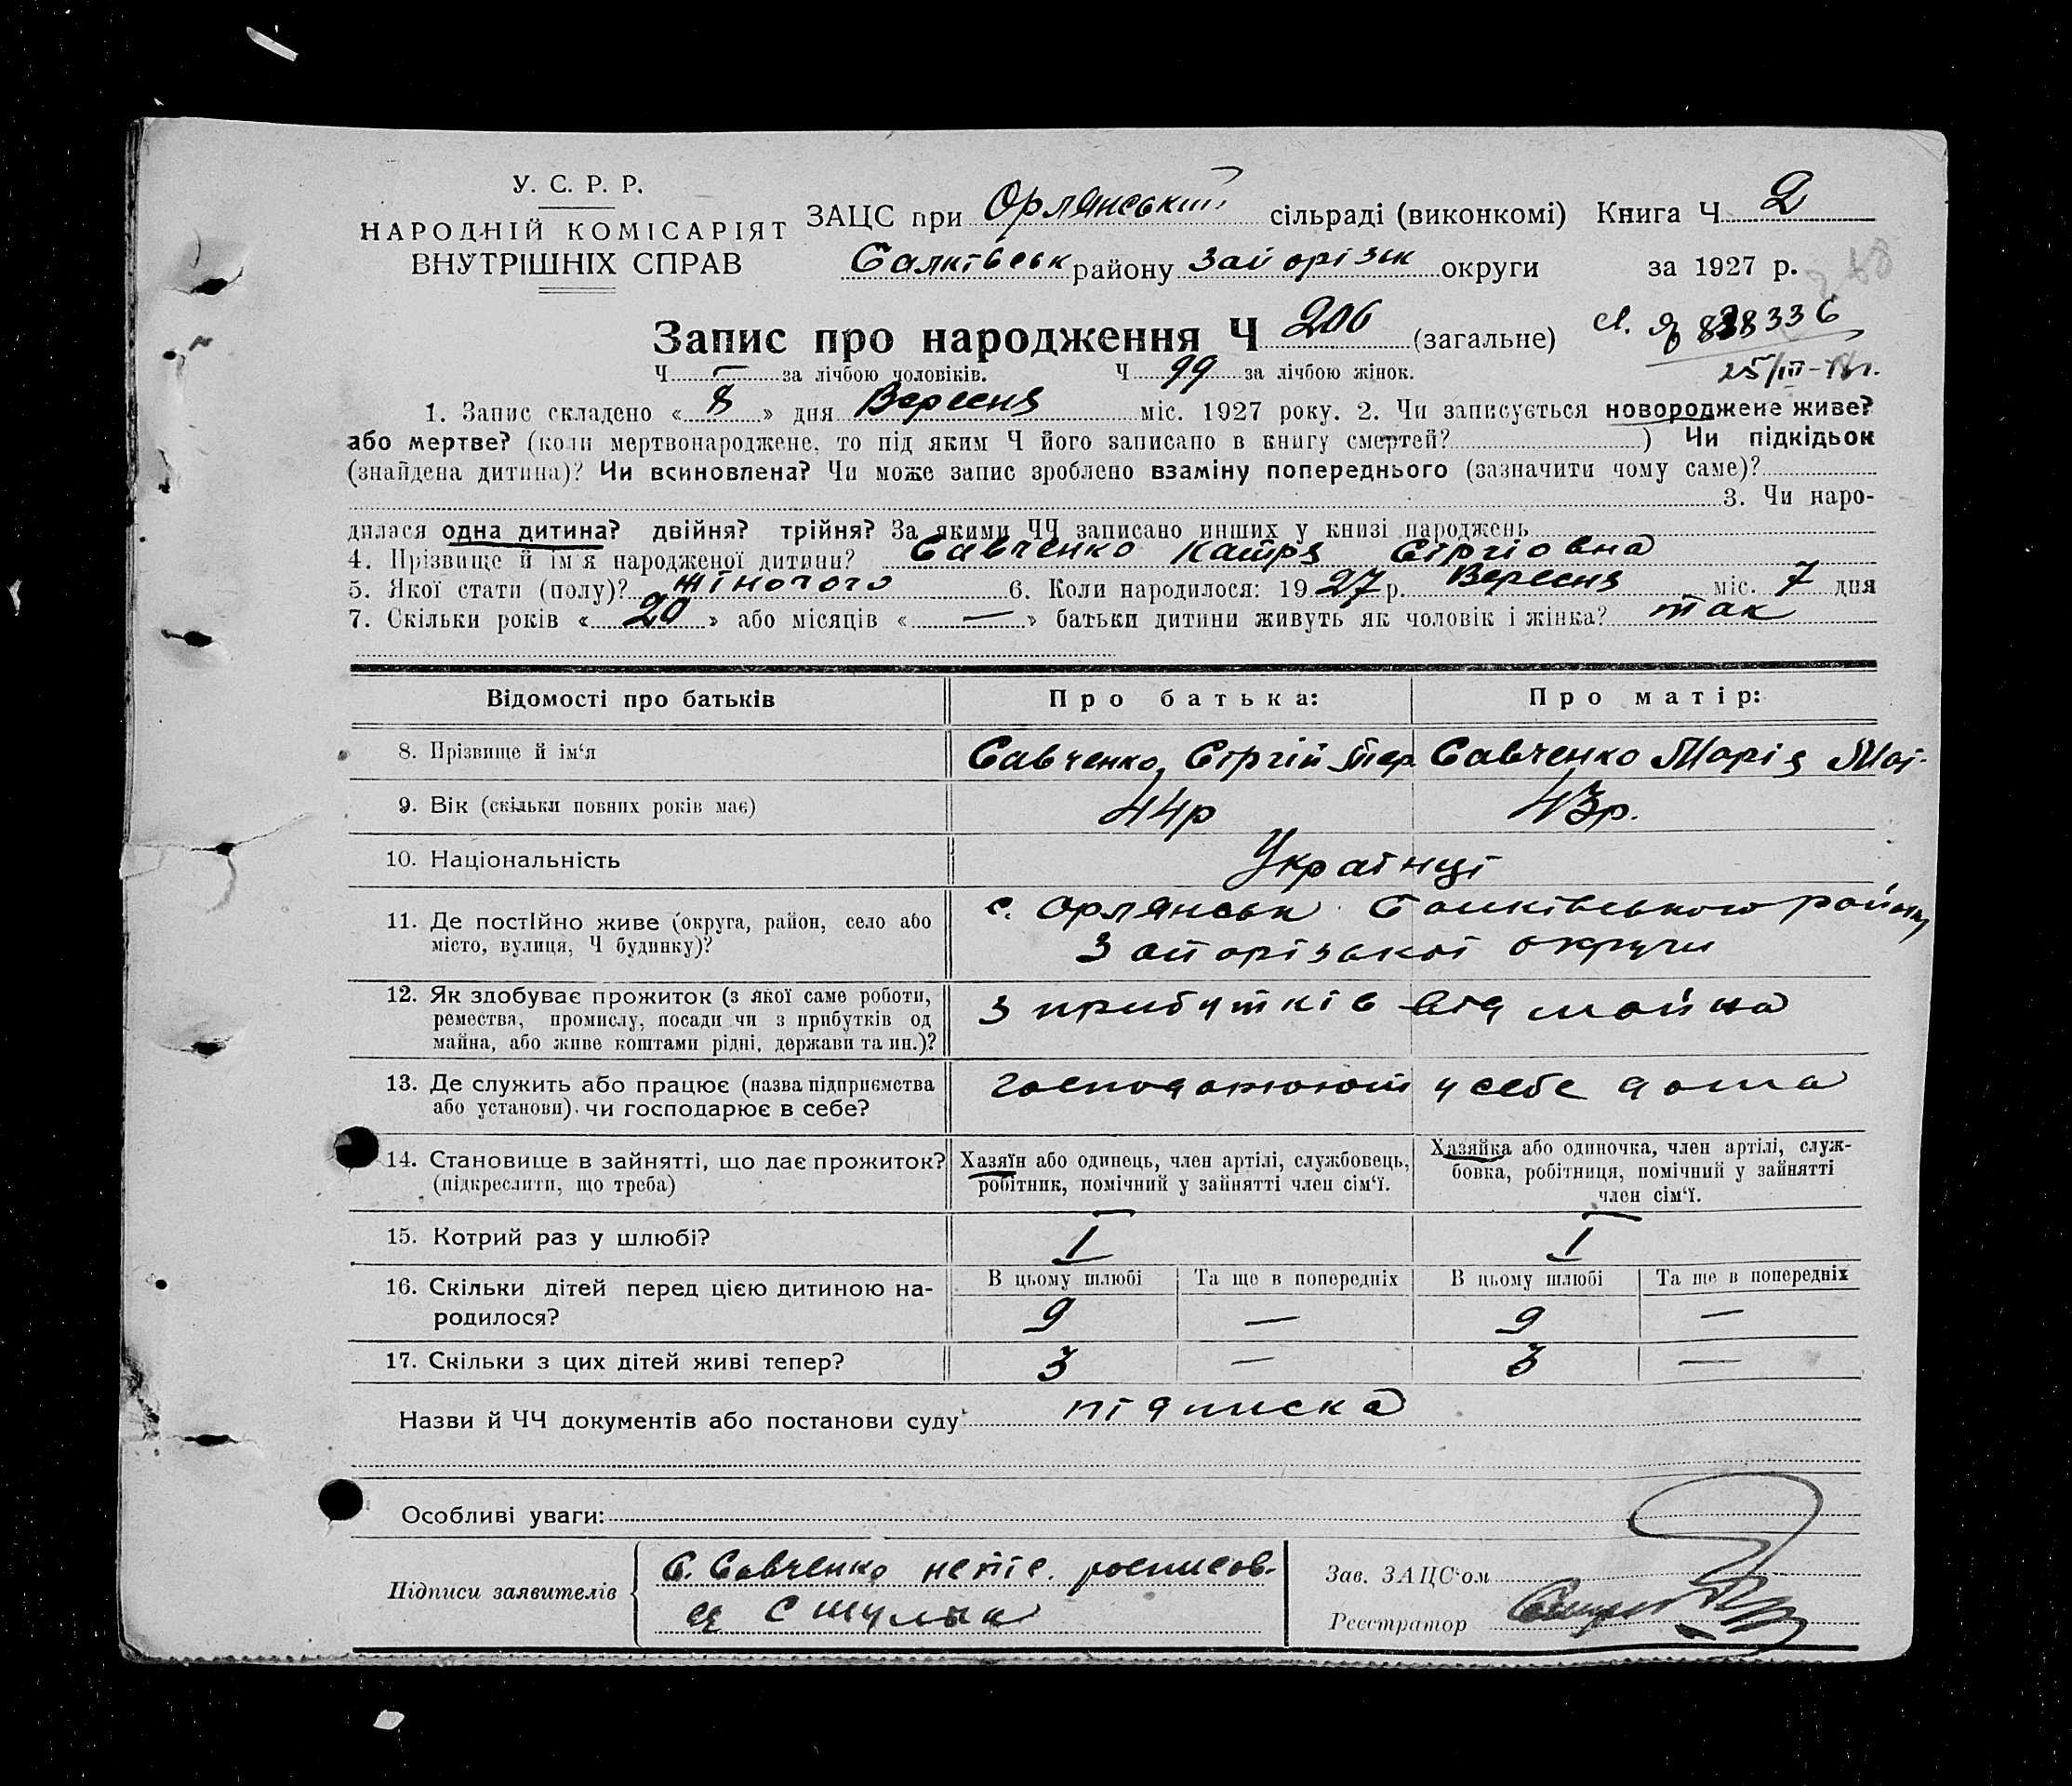 У. С. Р. Р.
НАРОДНІЙ КОМІСАРІЯТ
ВНУТРІШНІХ СПРАВ
ЗАЦС при Орлянський сільраді (виконкомі) Книга Ч 2
Балківськ району Запорізьк округи за 1927 р.
Запис про народження Ч 206 (загальне)
828336
25/III-
Ч — за лічбою чоловіків. Ч 99 за лічбою жінок.
1. Запис складено « 8 » дня Вересня міс. 1927 року. 2. Чи записується новороджене живе?
або мертве? (коли мертвонароджене, то під яким Ч його записано в книгу смертей? ) Чи підкідьок
(знайдена дитина)? Чи всиновлена? Чи може запис зроблено взаміну попереднього (зазначити чому саме)?
3. Чи наро-
дилася одна дитина? двійня? трійня? За якими ЧЧ записано инших у книзі народжень
4. Прізвище й ім'я народженої дитини? Савченко Катря Сергіовна
5. Якої стати (полу)? жіночого 6. Коли народилося: 19 27 р. Вересня міс. 7 дня
7. Скільки років « 20 » або місяців « — » батьки дитини живуть як чоловік і жінка? так
Відомості про батьків Про батька: Про матір:
8. Прізвище й ім'я Савченко Сергій Савченко Марія
9. Вік (скільки повних років має) 44р 43р.
10. Національність Українці
11. Де постійно живе (округа, район, село або
місто, вулиця, Ч будинку)? с. Орлянськ Балківського району
Запорізької округи
12. Як здобуває прожиток (з якої саме роботи,
ремества, промислу, посади чи з прибутків од
майна, або живе коштами рідні, держави та ин.)? з прибутків від майна
13. Де служить або працює (назва підприємства
або установи) чи господарює в себе? господарюють у себе дома
14. Становище в зайнятті, що дає прожиток?
(підкреслити, що треба)
Хазяїн або одинець, член артілі, службовець,
робітник, помічний у зайнятті член сім'ї.
Хазяйка або одиночка, член артілі, служ-
бовка, робітниця, помічний у зайнятті
член сім'ї.
15. Котрий раз у шлюбі? I I
16. Скільки дітей перед цією дитиною на-
родилося?
В цьому шлюбі Та ще в попередніх В цьому шлюбі Та ще в попередніх
9 — 9 —
17. Скільки з цих дітей живі тепер? 3 — 3 —
Назви й ЧЧ документів або постанови суду підписка
Особливі уваги:
Підписи заявителів С. Савченко
Зав. ЗАЦС'ом
Реєстратор